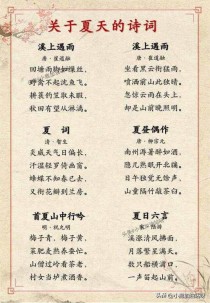 关于夏天的诗词
溪上遇雨
唐·崔道融
回塘雨脚如缫丝，
野禽不起沈鱼飞。
耕蓑钓笠取未暇，
秋田有望从淋漓。
溪上遇雨
唐·崔道融
坐看黑云衔猛雨，
喷洒前山此独晴。
忽惊云雨在头上，
却是山前晚照明。
夏 词
清·智生
炎威天气日偏长，
汗湿轻罗倚画窗。
蜂蝶不知春已去，
又衔花瓣到兰房。
夏昼偶作
唐·柳宗元
南州溽暑醉如酒，
隐几熟眠开北牖。
日午独觉无余声，
山童隔竹敲茶臼。
首夏山中行吟
明·祝允明
梅子青，梅子黄，
菜肥麦熟养蚕忙。
山僧过岭看茶老，
村女当垆煮酒香。
夏日六言
宋·陆游
溪涨清风拂面，
月落繁星满天。
数只船横浦口，
一声笛起山前。